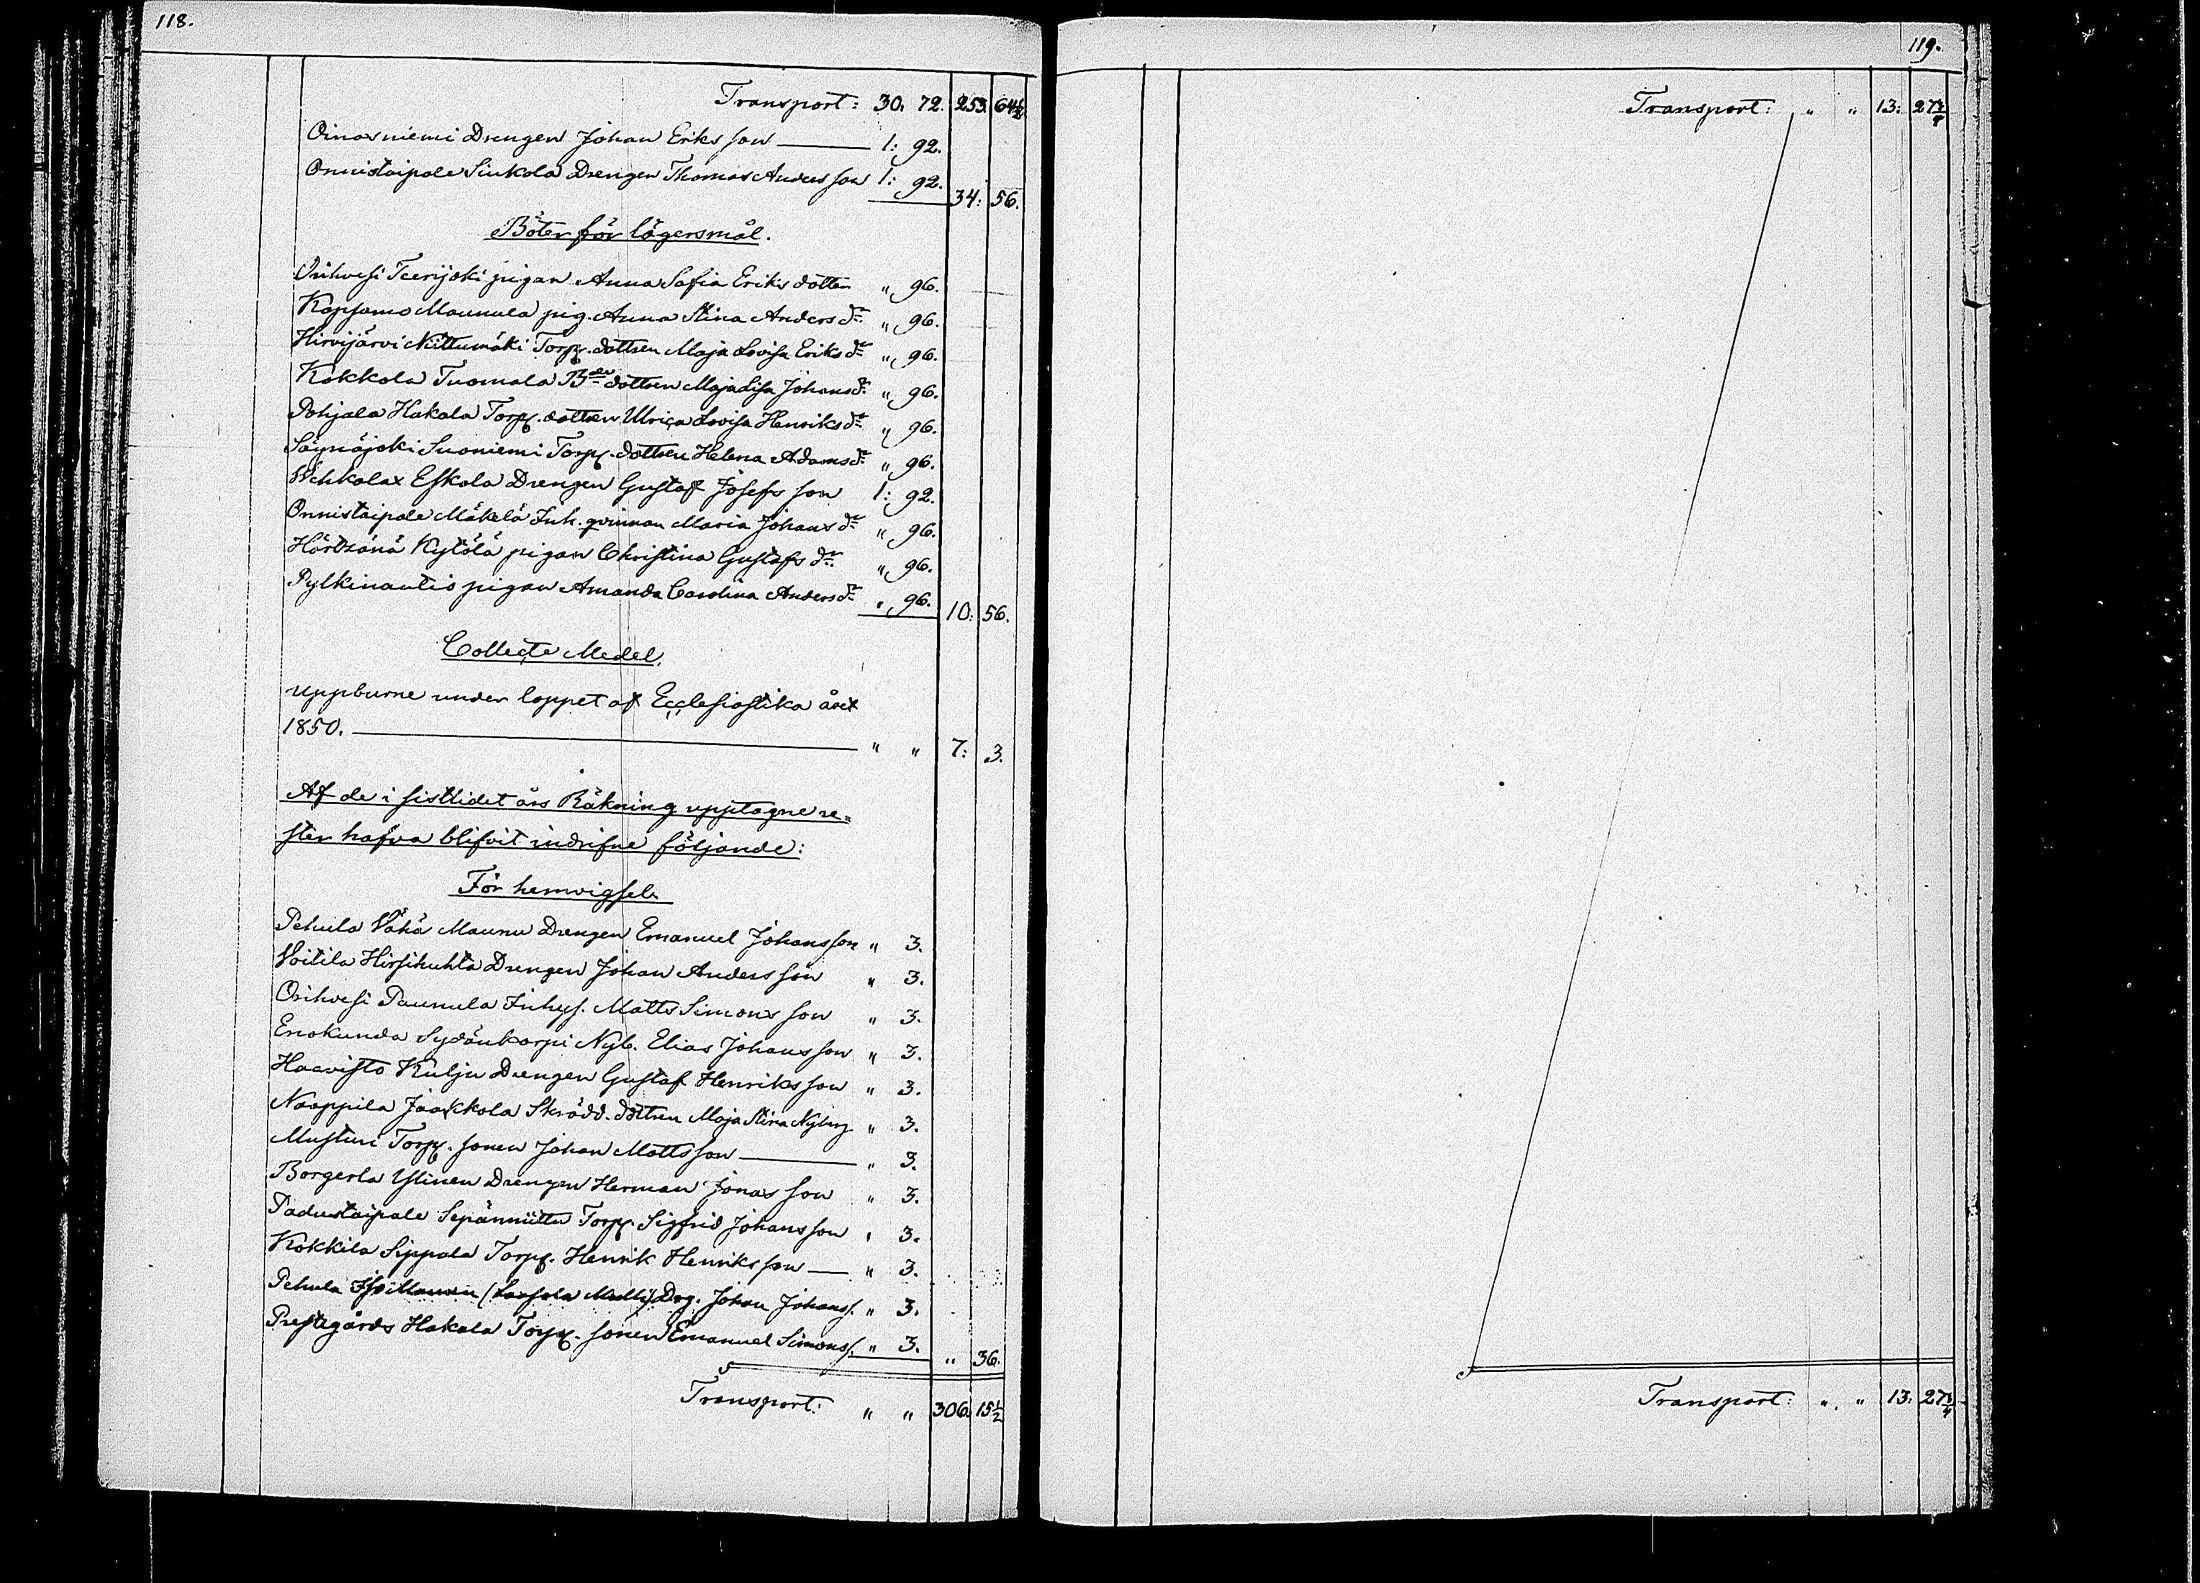 118.
Transport: 30. 72. 253. 64½
Oinasniemi Drengen Johan Eriksson 1: 92.
Onnistaipale Sinkola Drengen Thomas Andersson 1: 92. 34: 56.
Böter för lägersmål.
Orihvesi Teerijoki pigan Anna Sofia Eriks dotter " 96.
Kopsamo Maunula pig. Anna Stina Anders dr " 96.
Hirvijärvi Niittumäki Torp. dottren Maja Lovisa Eriks dr " 96.
Kokkola Tuomala Bde dottren Maja Lisa Johans dr " 96.
Pohjala Hakala Torp. dottren Ulrica Lovisa Henriks dr " 96.
Säynäjoki Suoniemi Torp. dottren Helena Adams dr " 96.
Wehkalax Eskola Drengen Gustaf Josefsson 1: 92.
Onnistaipale Mäkelä Inh. qvinnan Maria Johans dr " 96.
Kytölä pigan Christina Gustafs dr " 96.
Pylkinautio pigan Amanda Carolina Anders dr " 96. 10: 56.
Collecte Medel,
uppburne under loppet af Ecclesiastika året
1850. " " 7: 3.
Af de i sistlidet års Räkning upptagne re=
ster hafva blifvit indrifne följande:
För hemvigsel.
Pehula Vähä Maunu Drengen Emanuel Johansson " 3.
Voitila Hirsihuhta Drengen Johan Andersson " 3.
Orihvesi Paunula Inhys. Matts Simonsson " 3.
Enokunda Sydänkorpi Nyb. Elias Johansson " 3.
Haavisto Kulju Drengen Gustaf Henriksson " 3.
Naappila Jaakkola Skrädd. dottren Maja Stina Nyberg " 3.
Musturi Torp. sonen Johan Mattsson " 3.
Borgerla Ylinen Drengen Herman Jonasson " 3.
Padustaipale Sepänniittu Torp. Sigfrid Johansson " 3.
Kokkila Sippola Torp. Henrik Henriksson " 3.
Pehula Iso Maunu Drg. Johan Johanss. " 3.
Prestegårds Hakala Torp. sonen Emanuel Simonss. " 3. " 36.
Transport: " " 306. 15½
119.
Transport: " " 13: 27¾
Transport: " " 13: 27¾